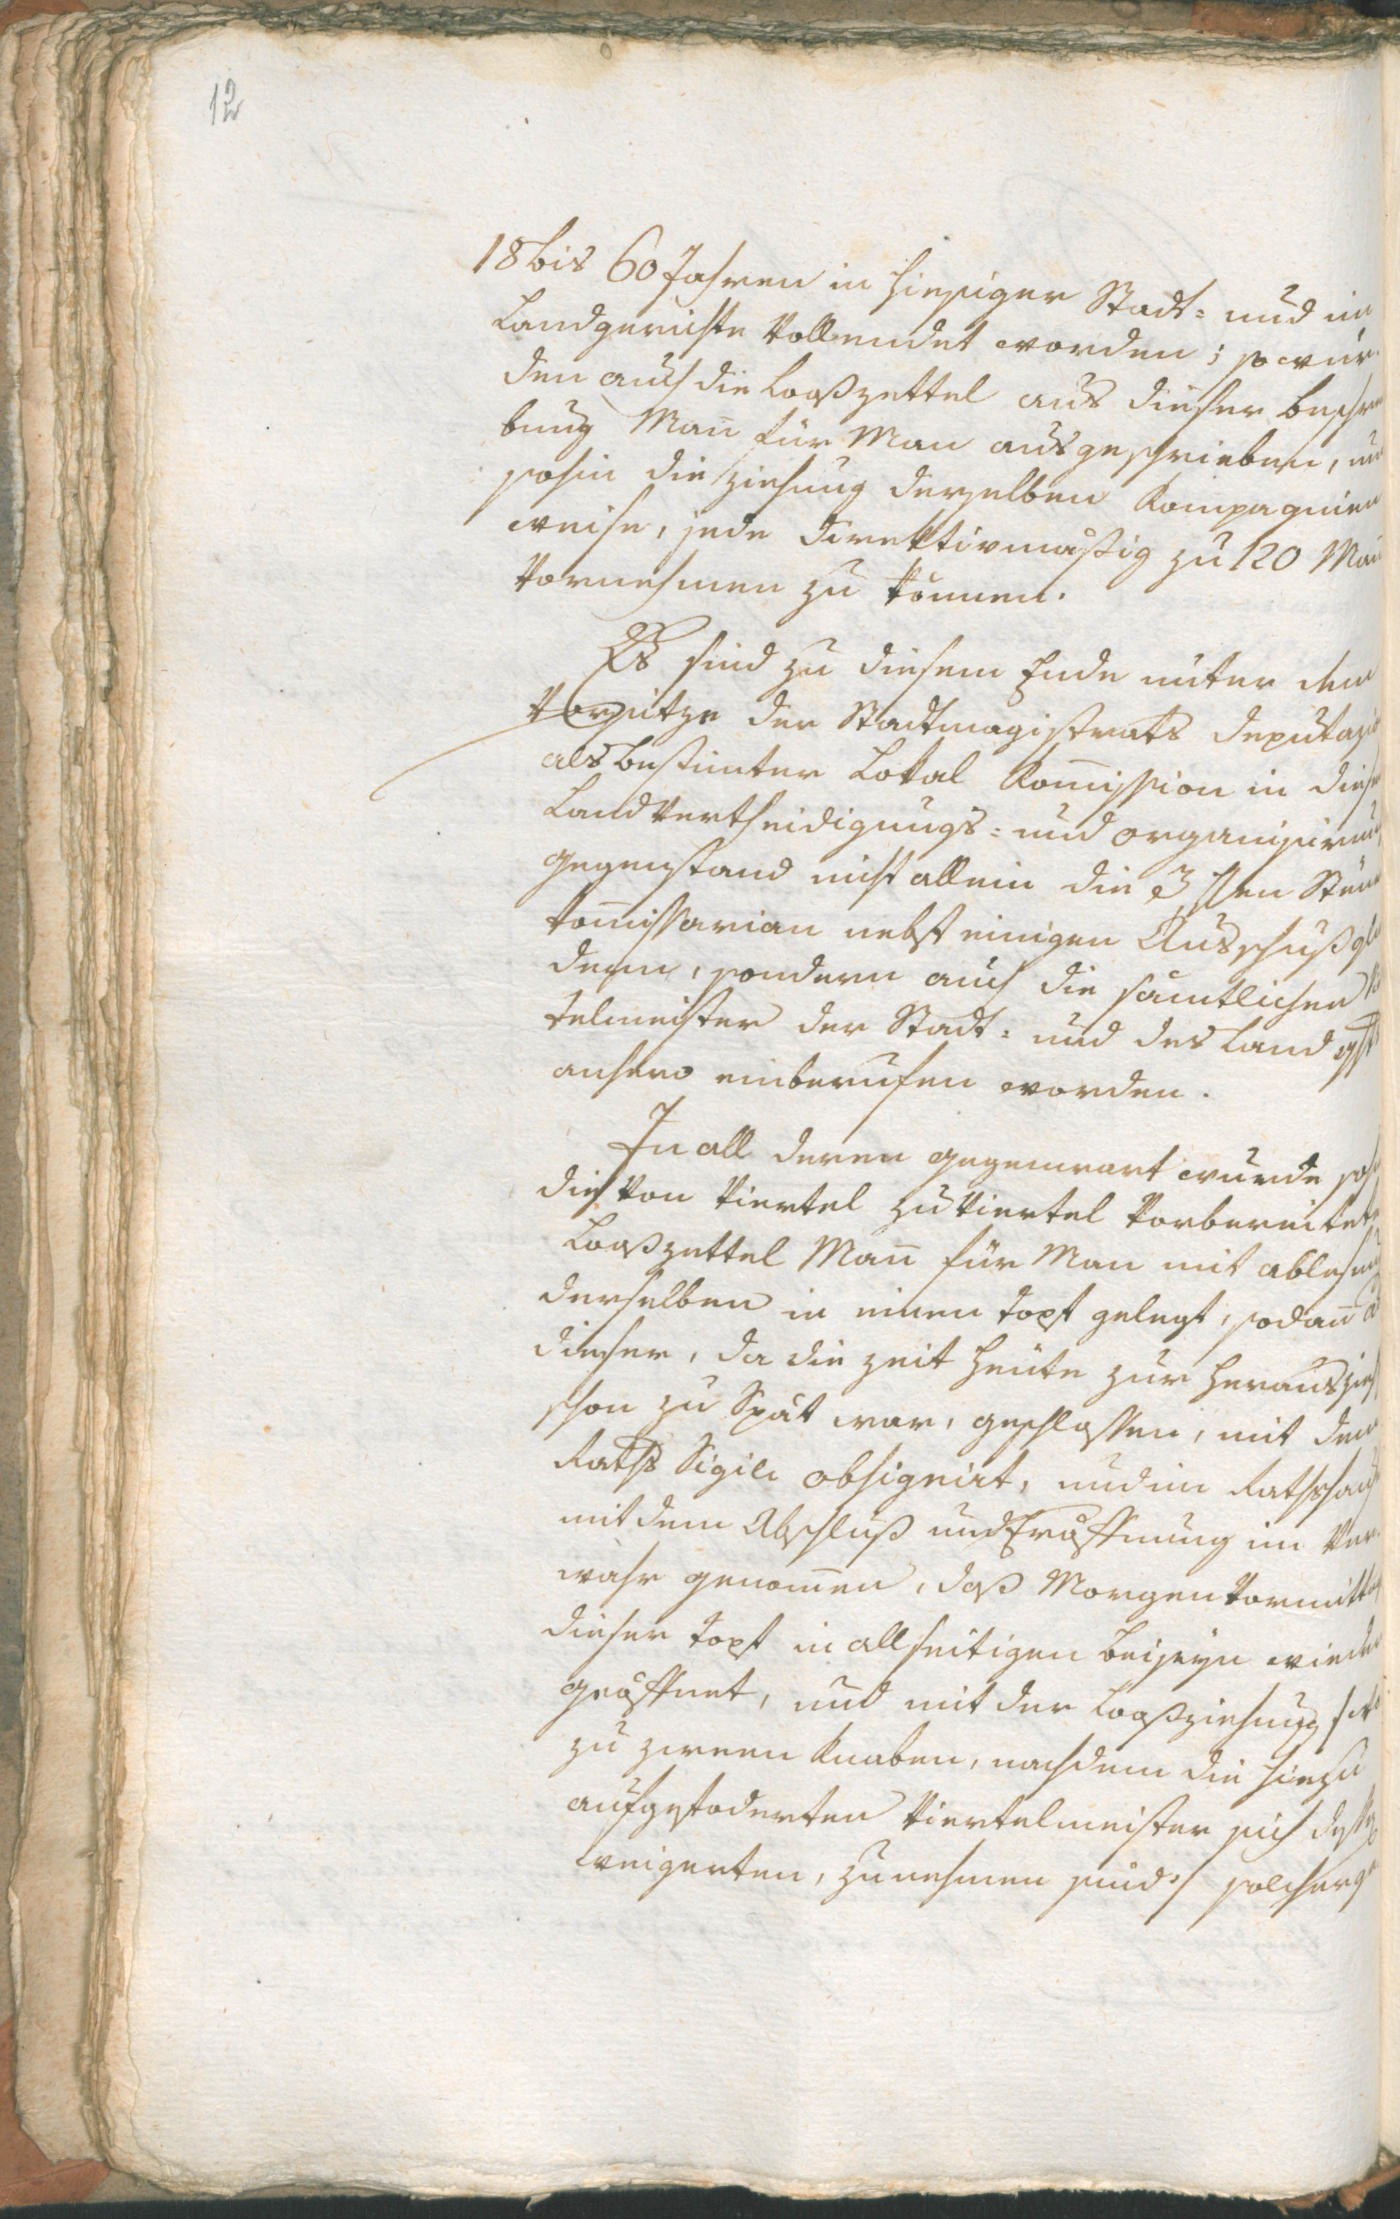 12
18 bis 60 Jahren in hiesiger Stadt= und im
Landgerichte vollendet worden; so wur-
den auch die Looßzettel aus dieser Beschrei
bung Mañ für Man ausgeschrieben, und
sohin die Ziehung derselben Kompagnien
weise, jede direktivmäßig zu 120 Man
vornehmen zu können.
Es sind zu diesem Ende unter dem
Vorsitze der Stadtmagistrats Deputazion
als bestimter Lokal Kom̄ission in dieser
Landvertheidigungs= und organisirungs
gegenstand nicht allein die 3 Hen Steuer
kom̄issarien nebst einigen Ausschußglie
dern, sondern auch die sämtlichen Vier
telmeister der Stadt= und des Landgchts
anhero einberufen worden.
In all deren gegenwart wurde sohin
die von Viertel zu Viertel vorbereitete
Looßzettel Mañ für Man mit ablesung
derselben in einen Topf gelegt, sodañ
dieser, da die Zeit heute zur herauszieh
schon zu Spät war, geschlossen, mit dem
Raths Sigill obsignirt, und im Rathshaus
mit dem Abschluß und Eröffnung in Ver-
wahr genom̄en, daß Morgen vormittag
dieser Topf in allseitigen Beyseyn wieder
geöffnet, und mit der Looßziehung
zu zween Knaben, nachdem die hiezu
aufgefoderten Viertelmeister sich dessen
weigerten, zu nehmen sind:/ solcherge